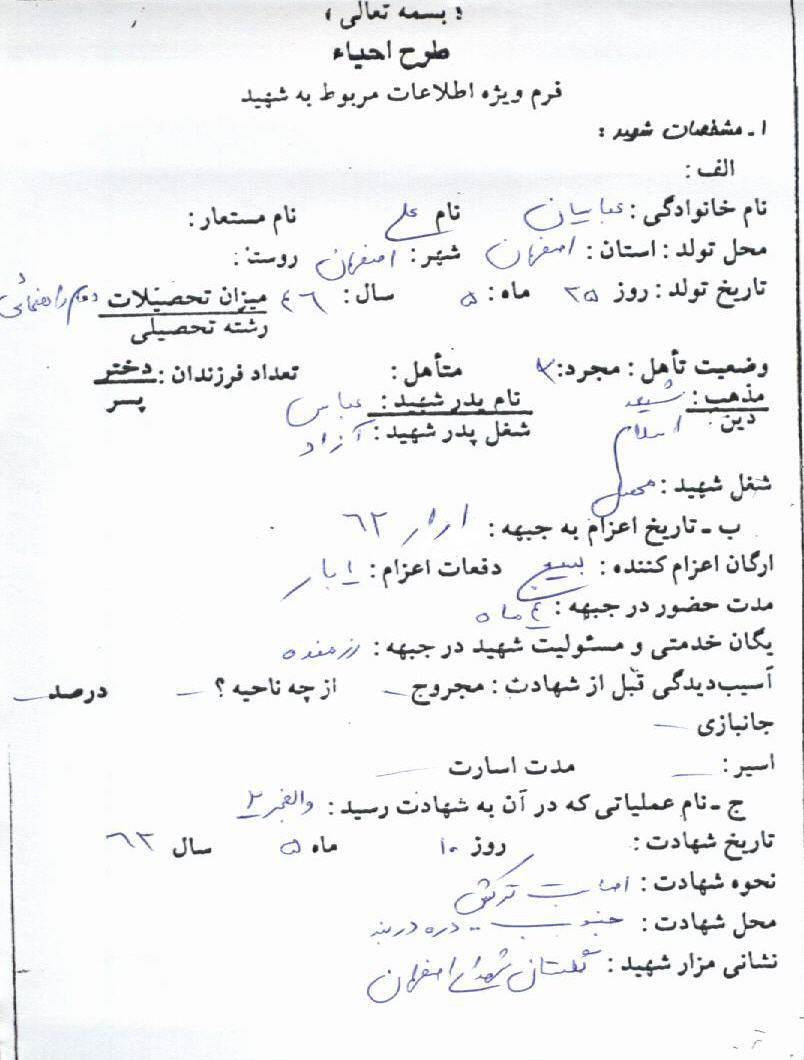 « بسمه تعالی »
طرح احیاء
فرم ویژه اطلاعات مربوط به شهید
۱ـ مشخصات شهید :
الف :
نام خانوادگی : عباسیان نام علی نام مستعار :
محل تولد : استان : اصفهان شهر : اصفهان روستا :
تاریخ تولد : روز ۲۵ ماه : ۵ سال : ۴۶ میزان تحصیلات دوم راهنمائی
رشته تحصیلی
وضعیت تأهل : مجرد : متأهل : تعداد فرزندان : دختر
پسر
مذهب : شیعه نام پدر شهید : عباس
دین : اسلام شغل پدر شهید : آزاد
شغل شهید : محصل
ب ـ تاریخ اعزام به جبهه : ۶۲
ارگان اعزام کننده : بسیج دفعات اعزام : ۱ بار
مدت حضور در جبهه : ۴ ماه
یگان خدمتی و مسئولیت شهید در جبهه : رزمنده
آسیب‌دیدگی قبل از شهادت : مجروح ـ از چه ناحیه ؟ ـ درصد ـ
جانبازی ـ
اسیر : ـ مدت اسارت ـ
ج ـ نام عملیاتی که در آن به شهادت رسید : والفجر ۲
تاریخ شهادت : روز ۱۰ ماه ۵ سال ۶۲
نحوه شهادت : اصابت ترکش
محل شهادت : جنوب - دره دربند
نشانی مزار شهید : گلستان شهدای اصفهان